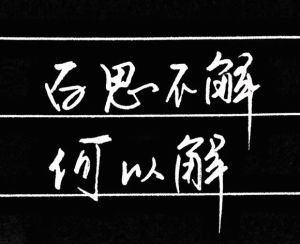 百思不解
何以解